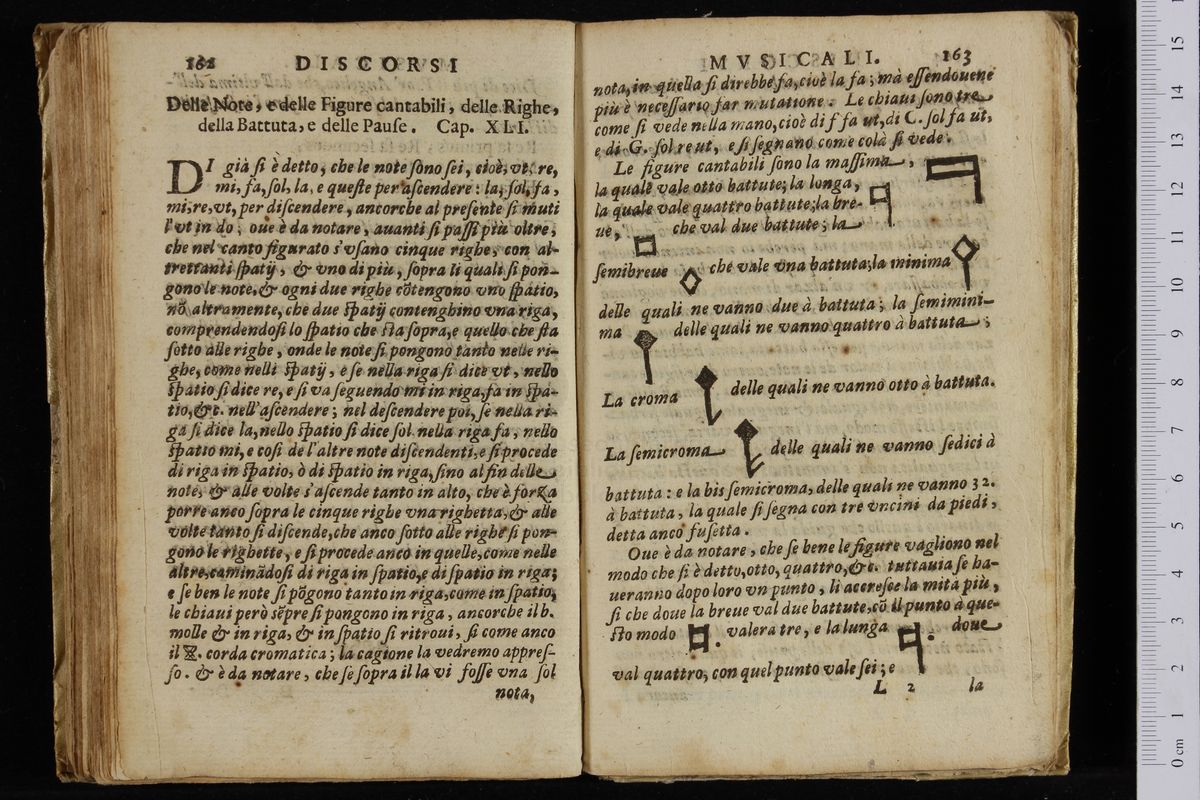 162 DISCORSI
Delle Note, e delle Figure cantabili, delle Righe,
della Battuta, e delle Pause. Cap. XLI.
DI già si è detto, che le note sono sei, cioè, vt, re,
mi, fa, sol, la, e queste per ascendere : la, sol, fa,
mi, re, vt, per discendere, ancorche al presente si muti
l'vt in do ; oue è da notare, auanti si passi più oltre,
che nel canto figurato s'vsano cinque righe, con al-
trettanti spatij, & vno di più, sopra li quali si pon-
gono le note, & ogni due righe cõtengono vno spatio,
nõ altramente, che due spatij contenghino vna riga,
comprendendosi lo spatio che sta sopra, e quello che sta
sotto alle righe, onde le note si pongono tanto nelle ri-
ghe, come nelli spatij, e se nella riga si dice vt, nello
spatio si dice re, e si va seguendo mi in riga, fa in spa-
tio, &c. nell'ascendere ; nel descendere poi, se nella ri-
ga si dice la, nello spatio si dice sol. nella riga fa, nello
spatio mi, e così de l'altre note discendenti, e si procede
di riga in spatio, ò di spatio in riga, sino al fin delle
note, & alle volte s'ascende tanto in alto, che è forza
porre anco sopra le cinque righe vna righetta, & alle
volte tanto si discende, che anco sotto alle righe si pon-
gono le righette, e si procede anco in quelle, come nelle
altre, caminãdosi di riga in spatio, e di spatio in riga;
e se ben le note si põgono tanto in riga, come in spatio,
le chiaui però sẽpre si pongono in riga, ancorche il b.
molle & in riga, & in spatio si ritroui, si come anco
il . corda cromatica ; la cagione la vedremo appres-
so. & è da notare, che se sopra il la vi fosse vna sol
nota,
MVSICALI. 163
nota, in quella si direbbe fa, cioè la fa ; mà essendouene
più è necessario far mutatione. Le chiaui sono tre
come si vede nella mano, cioè di f fa ut, di C. sol fa ut,
e di G. sol re ut, e si segnano come colà si vede.
Le figure cantabili sono la massima ,
la quale vale otto battute; la longa,
la quale vale quattro battute; la bre-
ue, che val due battute ; la
semibreue che vale vna battuta; la minima
delle quali ne vanno due à battuta ; la semimini-
ma delle quali ne vanno quattro à battuta ;
La croma delle quali ne vanno otto à battuta.
La semicroma delle quali ne vanno sedici à
battuta : e la bis semicroma, delle quali ne vanno 32.
à battuta, la quale si segna con tre vncini da piedi,
detta anco fusetta.
Oue è da notare, che se bene le figure vagliono nel
modo che si è detto, otto, quattro, &c. tuttauia se ha-
ueranno dopo loro vn punto, li accresce la mità più,
si che doue la breue val due battute, cõ il punto à que-
sto modo . valera tre, e la lunga . doue
val quattro, con quel punto vale sei ; e
L 2 la
0 cm 1 2 3 4 5 6 7 8 9 10 11 12 13 14 15